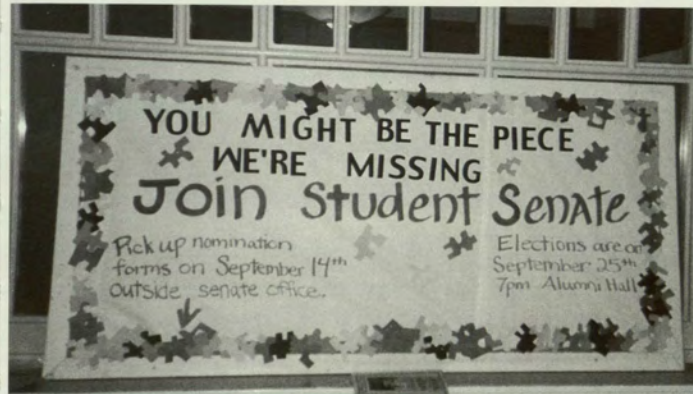 YOU MIGHT BE THE PIECE
WE'RE MISSING
Join Student Senate
Pick up nomination
forms on September 14th
outside senate office.
Elections are on
September 25th
7pm Alumni Hall